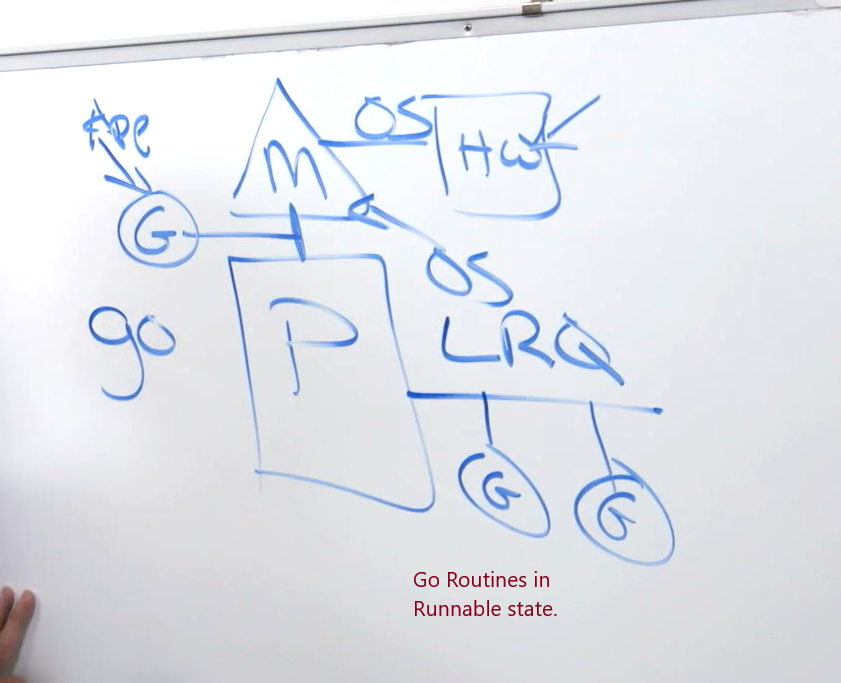 OS
HW
M
G
OS
go
P
LRQ
G
G
Go Routines in
Runnable state.